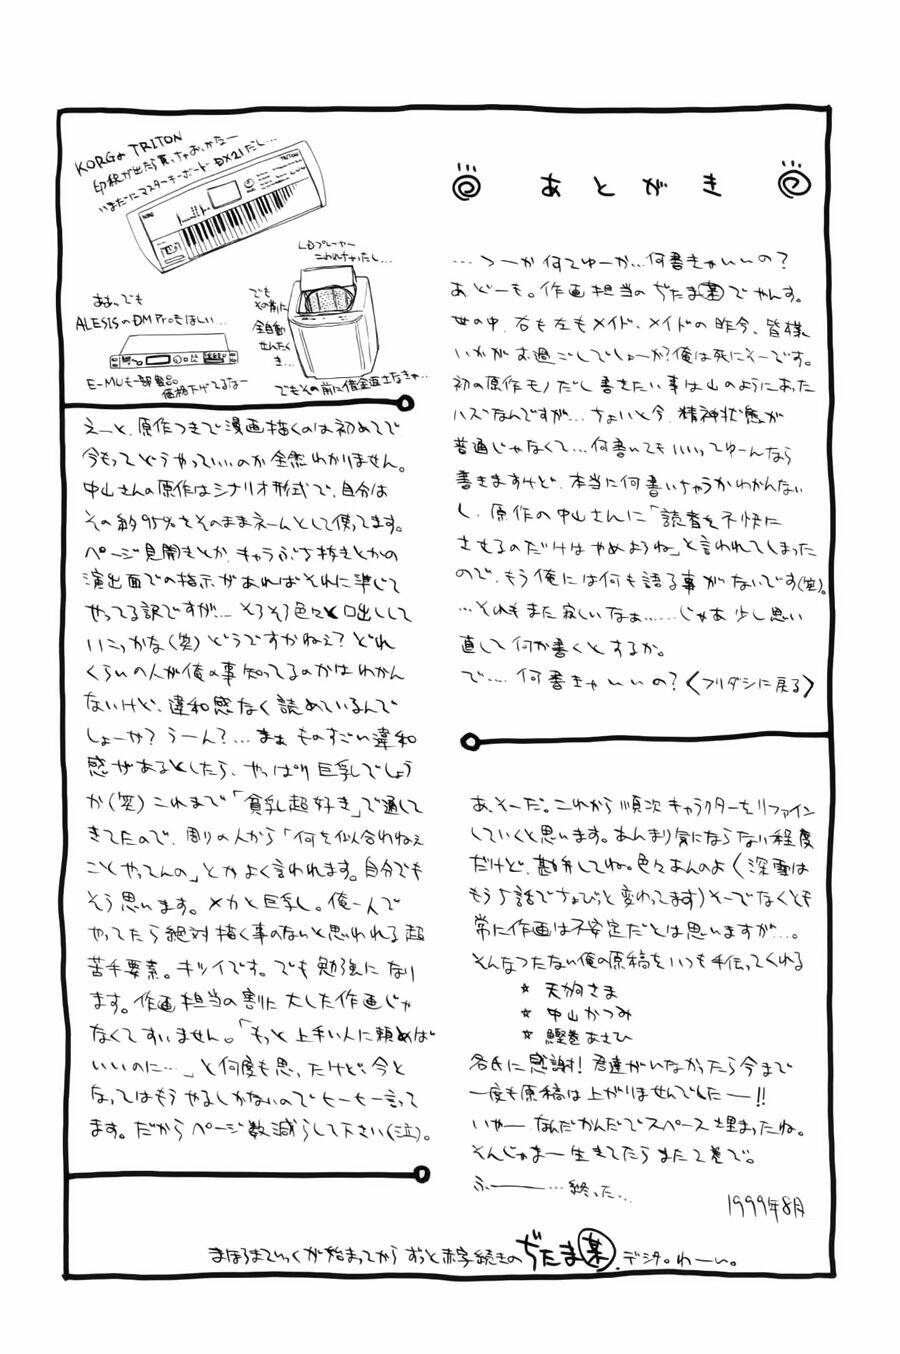 あとがき
…つーか何てゆーか…何書きゃいいの?
あどーも。作画担当のぢたま某でやんす。
世の中、右も左もメイド、メイドの昨今、皆様
いかがお過ごしでしょーか?俺は死にそーです。
初の原作モノだし書きたい事は山のようにあった
ハズなんですが…ちょいと今、精神状態が
普通じゃなくて…何書いてもいいってゆーんなら
書きますけど、本当に何書いちゃうかわかんない
し、原作の中山さんに「読者を不快に
させるのだけはやめようね」と言われてしまった
ので、もう俺には何も語る事がないです(笑)。
…それもまた寂しいなぁ……じゃあ少し思い
直して何か書くとするか。
で…何書きゃいいの?〈フリダシに戻る〉
あ、そーだ。これから順次キャラクターをリファイン
していくと思います。あんまり気にならない程度
だけど、勘弁してね。色々あんのよ(深雪は
もう5話でちょびっと変わってます)そーでなくとも
常に作画は不安定だとは思いますが…。
そんなつたない俺の原稿をいつも手伝ってくれる
☆ 天朔さま
☆ 中山かつみ
☆ 鰹巻あさひ
各氏に感謝!君達がいなかったら今まで
一度も原稿は上がりませんでしたー!!
いやーなんだかんだでスペース埋まったね。
そんじゃまー生きてたらまた2巻で。
ふー――…終った…
1999年8月
KORGのTRITON
印税が出たら買っちゃおっかなー
いまだにマスターキーボードDX21だし…
LDプレーヤー
こわれちゃったし…
でも
その前に
全自動
せんたく
き…
でもその前に借金返さなきゃ…
ああっ、でも
ALESISのDM Proもほしい…
E-MUも一部製品
価格下げてるなー
えーと、原作つきで漫画描くのは初めてで
今もってどうやっていいのか全然わかりません。
中山さんの原作はシナリオ形式で、自分は
その約95%をそのままネームとして使ってます。
ページ見開きとか、キャラぶち抜きとかの
演出面での指示があればそれに準じて
やってる訳ですが… そろそろ色々と口出しして
いこっかな(笑)どうですかねぇ?どれ
くらいの人が俺の事知ってるのかはわかん
ないけど、違和感なく読めているんで
しょーか?うーん?…まぁものすごい違和
感があるとしたら、やっぱり巨乳でしょう
か(笑)これまで「貧乳超好き」で通して
きてたので、周りの人から「何を似合わねぇ
ことやってんの」とかよく言われます。自分でも
そう思います。メカと巨乳し。俺一人で
やってたら絶対描く事のないと思われる超
苦手要素。キツイです。でも勉強になり
ます。作画担当の割に大した作画じゃ
なくてすいません。「もっと上手い人に頼めば
いいのに…」と何度も思ったけど、今と
なってはもうやるしかないのでヒーヒー言って
ます。だからページ数減らして下さい(泣)。
まほろまてぃっくが始まってからずっと赤字続きのぢたま某、デシタ。わーい。